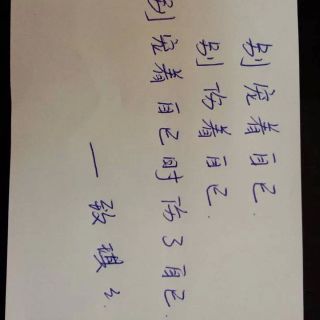 别宠着自己.
别伤着自己.
别宠着自己时伤了自己.
— 致琪